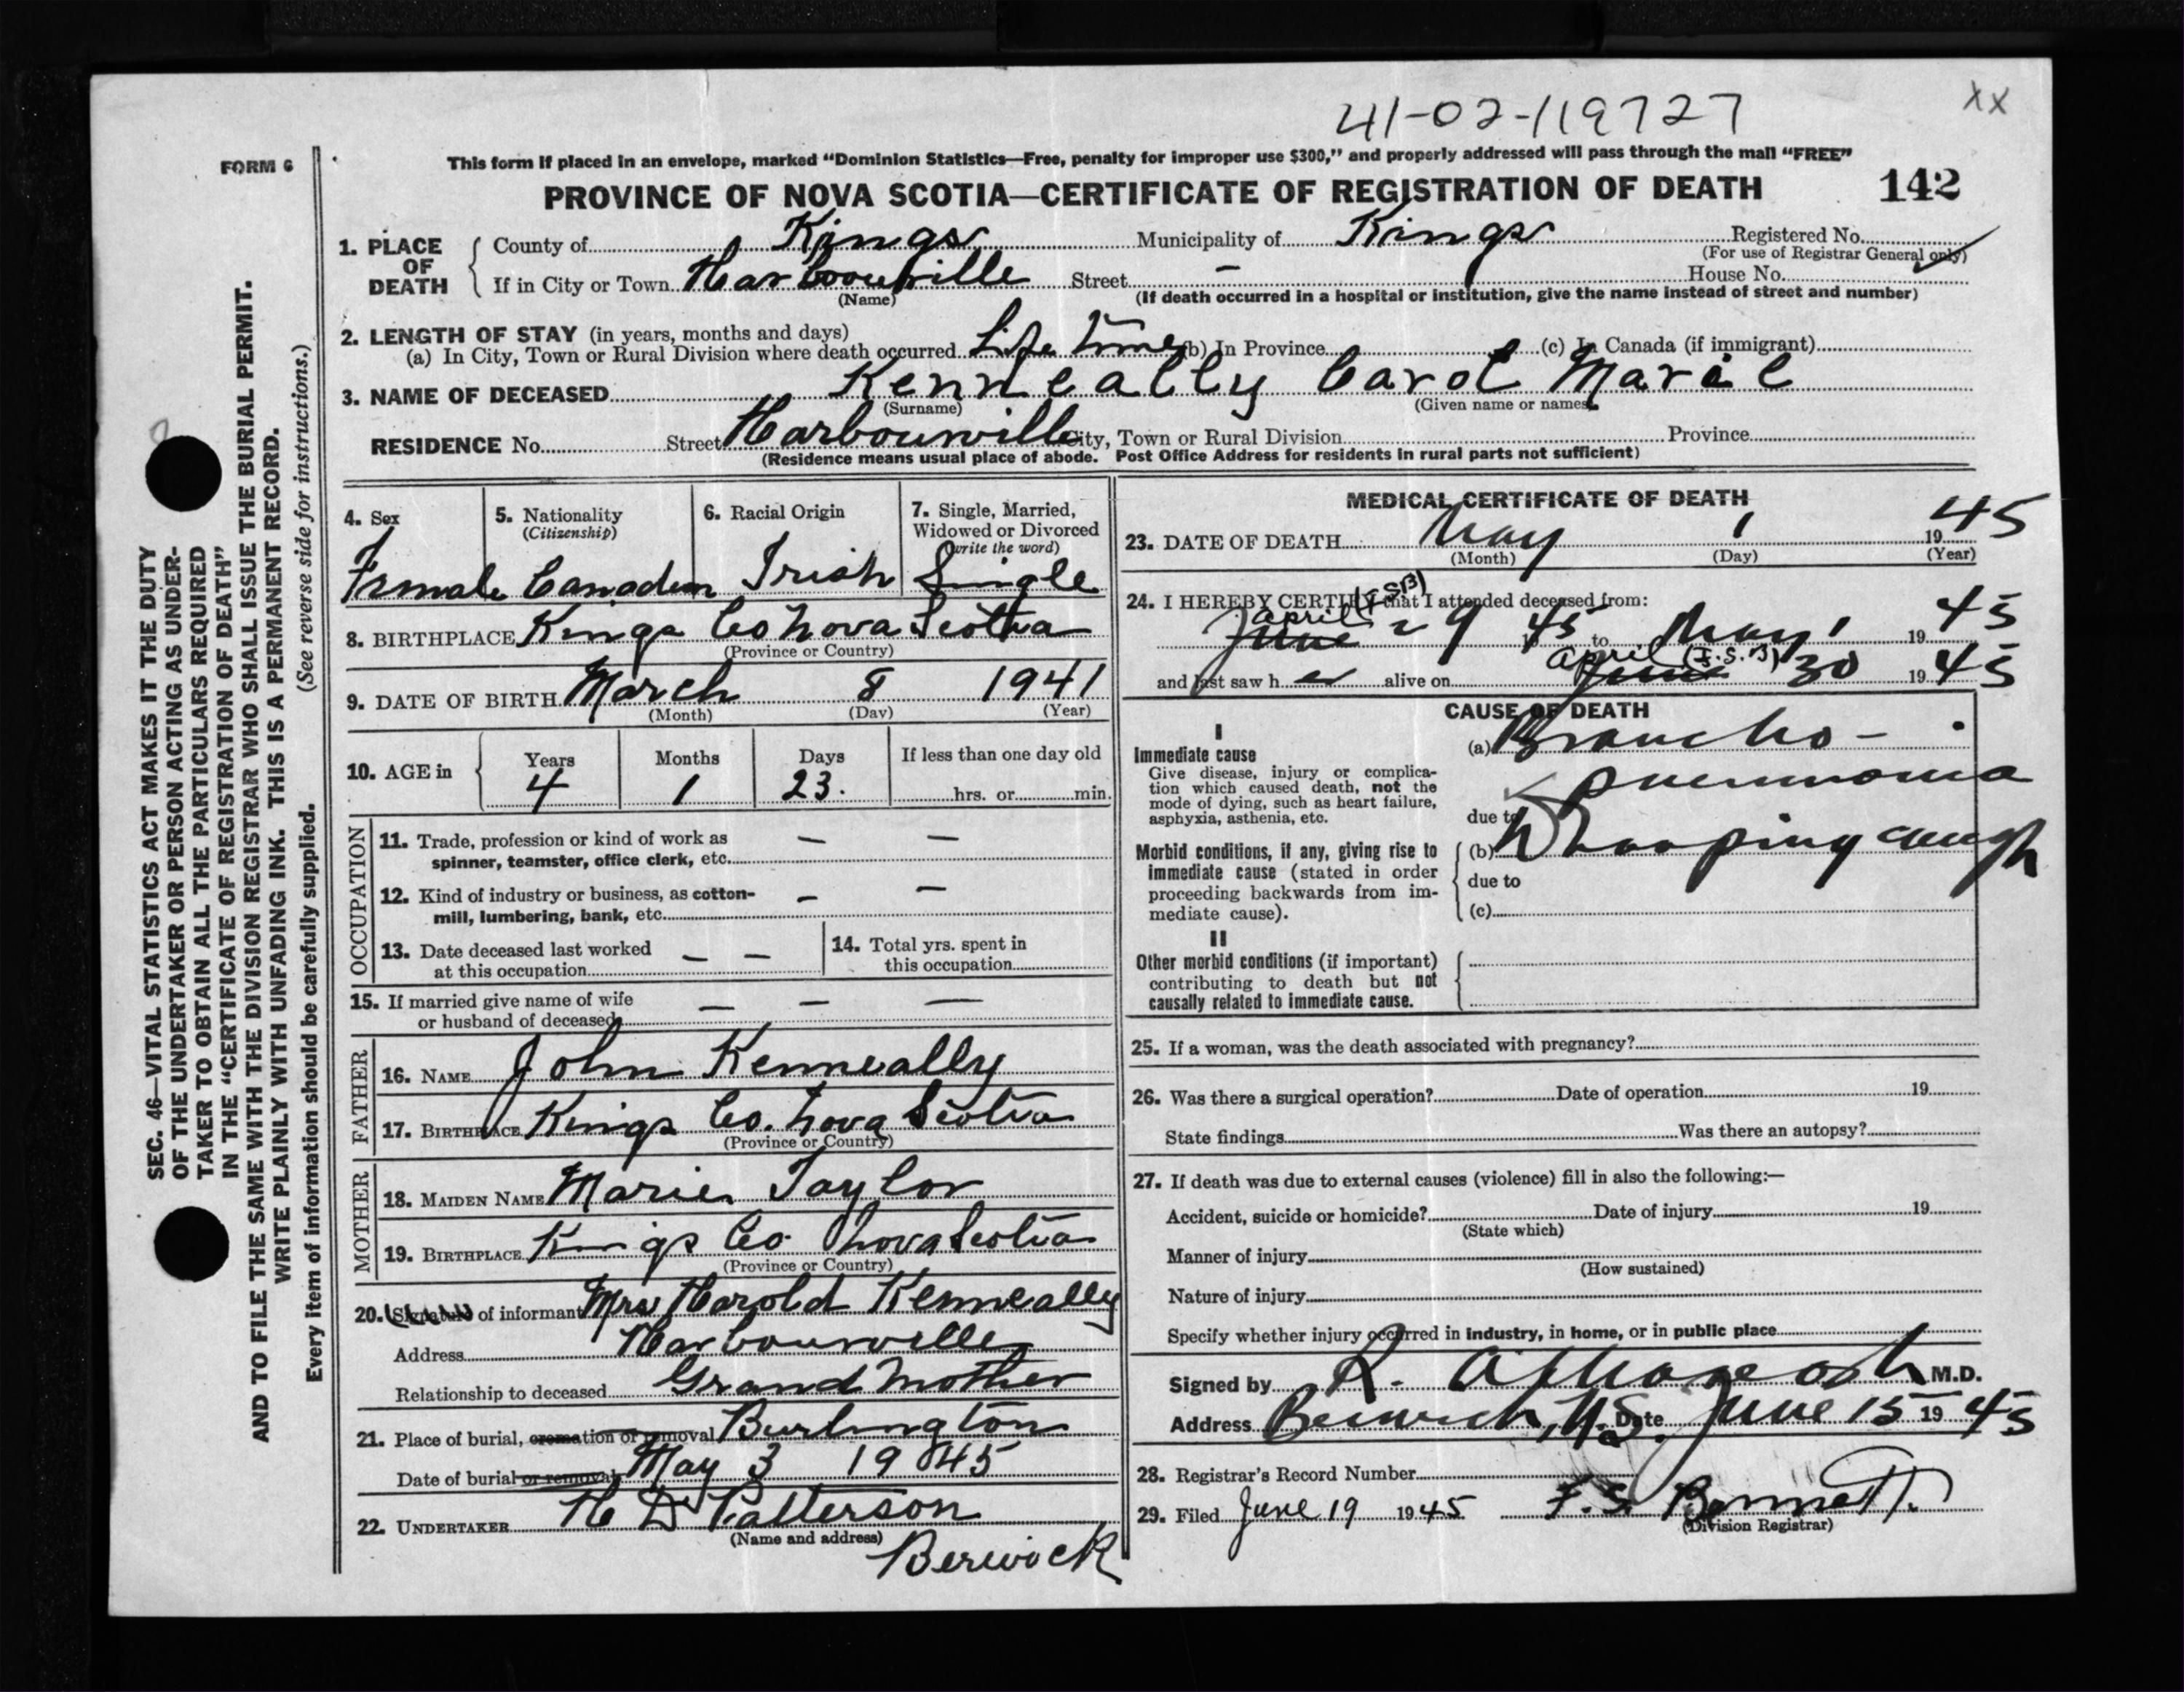 41-02-119727
XX
FORM 6
This form if placed in an envelope, marked "Dominion Statistics—Free, penalty for improper use $300," and properly addressed will pass through the mail "FREE"
PROVINCE OF NOVA SCOTIA—CERTIFICATE OF REGISTRATION OF DEATH 142
1. PLACE OF DEATH
County of Kings Municipality of Kings Registered No.
(For use of Registrar General only)
If in City or Town Harbourville Street — House No.
(Name) (If death occurred in a hospital or institution, give the name instead of street and number)
2. LENGTH OF STAY (in years, months and days)
(a) In City, Town or Rural Division where death occurred Life time (b) In Province (c) In Canada (if immigrant)
3. NAME OF DECEASED Kenneally Carol Marie
(Surname) (Given name or names)
RESIDENCE No. Street Harbourville City, Town or Rural Division Province
(Residence means usual place of abode. Post Office Address for residents in rural parts not sufficient)
4. Sex
Female
5. Nationality
(Citizenship)
Canadian
6. Racial Origin
Irish
7. Single, Married,
Widowed or Divorced
(write the word)
Single
8. BIRTHPLACE Kings Co Nova Scotia
(Province or Country)
9. DATE OF BIRTH March 8 1941
(Month) (Day) (Year)
10. AGE in
Years Months Days If less than one day old
4 1 23. hrs. or min.
OCCUPATION
11. Trade, profession or kind of work as — —
spinner, teamster, office clerk, etc.
12. Kind of industry or business, as cotton- — —
mill, lumbering, bank, etc.
13. Date deceased last worked — —
at this occupation
14. Total yrs. spent in
this occupation
15. If married give name of wife — — —
or husband of deceased
FATHER
16. NAME John Kenneally
17. BIRTHPLACE Kings Co. Nova Scotia
(Province or Country)
MOTHER
18. MAIDEN NAME Marie Taylor
19. BIRTHPLACE Kings Co Nova Scotia
(Province or Country)
20. Signature of informant Mrs Harold Kenneally
Address Harbourville
Relationship to deceased Grand Mother
21. Place of burial, cremation or removal Burlington
Date of burial or removal May 3 1945
22. UNDERTAKER H D Patterson
(Name and address)
Berwick
MEDICAL CERTIFICATE OF DEATH
23. DATE OF DEATH May 1 1945
(Month) (Day) (Year)
24. I HEREBY CERTIFY that I attended deceased from:
April (F.S.B)
June 29 1945 to May 1 1945
April (F.S.B)
and last saw h er alive on June 30 1945
CAUSE OF DEATH
I
Immediate cause
Give disease, injury or complica-
tion which caused death, not the
mode of dying, such as heart failure,
asphyxia, asthenia, etc.
(a) Broncho-
pneumonia
due to
Morbid conditions, if any, giving rise to
immediate cause (stated in order
proceeding backwards from im-
mediate cause).
(b) Whooping cough
due to
(c)
II
Other morbid conditions (if important)
contributing to death but not
causally related to immediate cause.
25. If a woman, was the death associated with pregnancy?
26. Was there a surgical operation? Date of operation 19
State findings Was there an autopsy?
27. If death was due to external causes (violence) fill in also the following:—
Accident, suicide or homicide? Date of injury 19
(State which)
Manner of injury
(How sustained)
Nature of injury
Specify whether injury occurred in industry, in home, or in public place
Signed by R. M.D.
Address Berwick, N.S. Date June 15 1945
28. Registrar's Record Number
29. Filed June 19 1945 F. S. Bennett
(Division Registrar)
SEC. 46—VITAL STATISTICS ACT MAKES IT THE DUTY
OF THE UNDERTAKER OR PERSON ACTING AS UNDER-
TAKER TO OBTAIN ALL THE PARTICULARS REQUIRED
IN THE "CERTIFICATE OF REGISTRATION OF DEATH"
AND TO FILE THE SAME WITH THE DIVISION REGISTRAR WHO SHALL ISSUE THE BURIAL PERMIT.
WRITE PLAINLY WITH UNFADING INK. THIS IS A PERMANENT RECORD.
Every item of information should be carefully supplied. (See reverse side for instructions.)